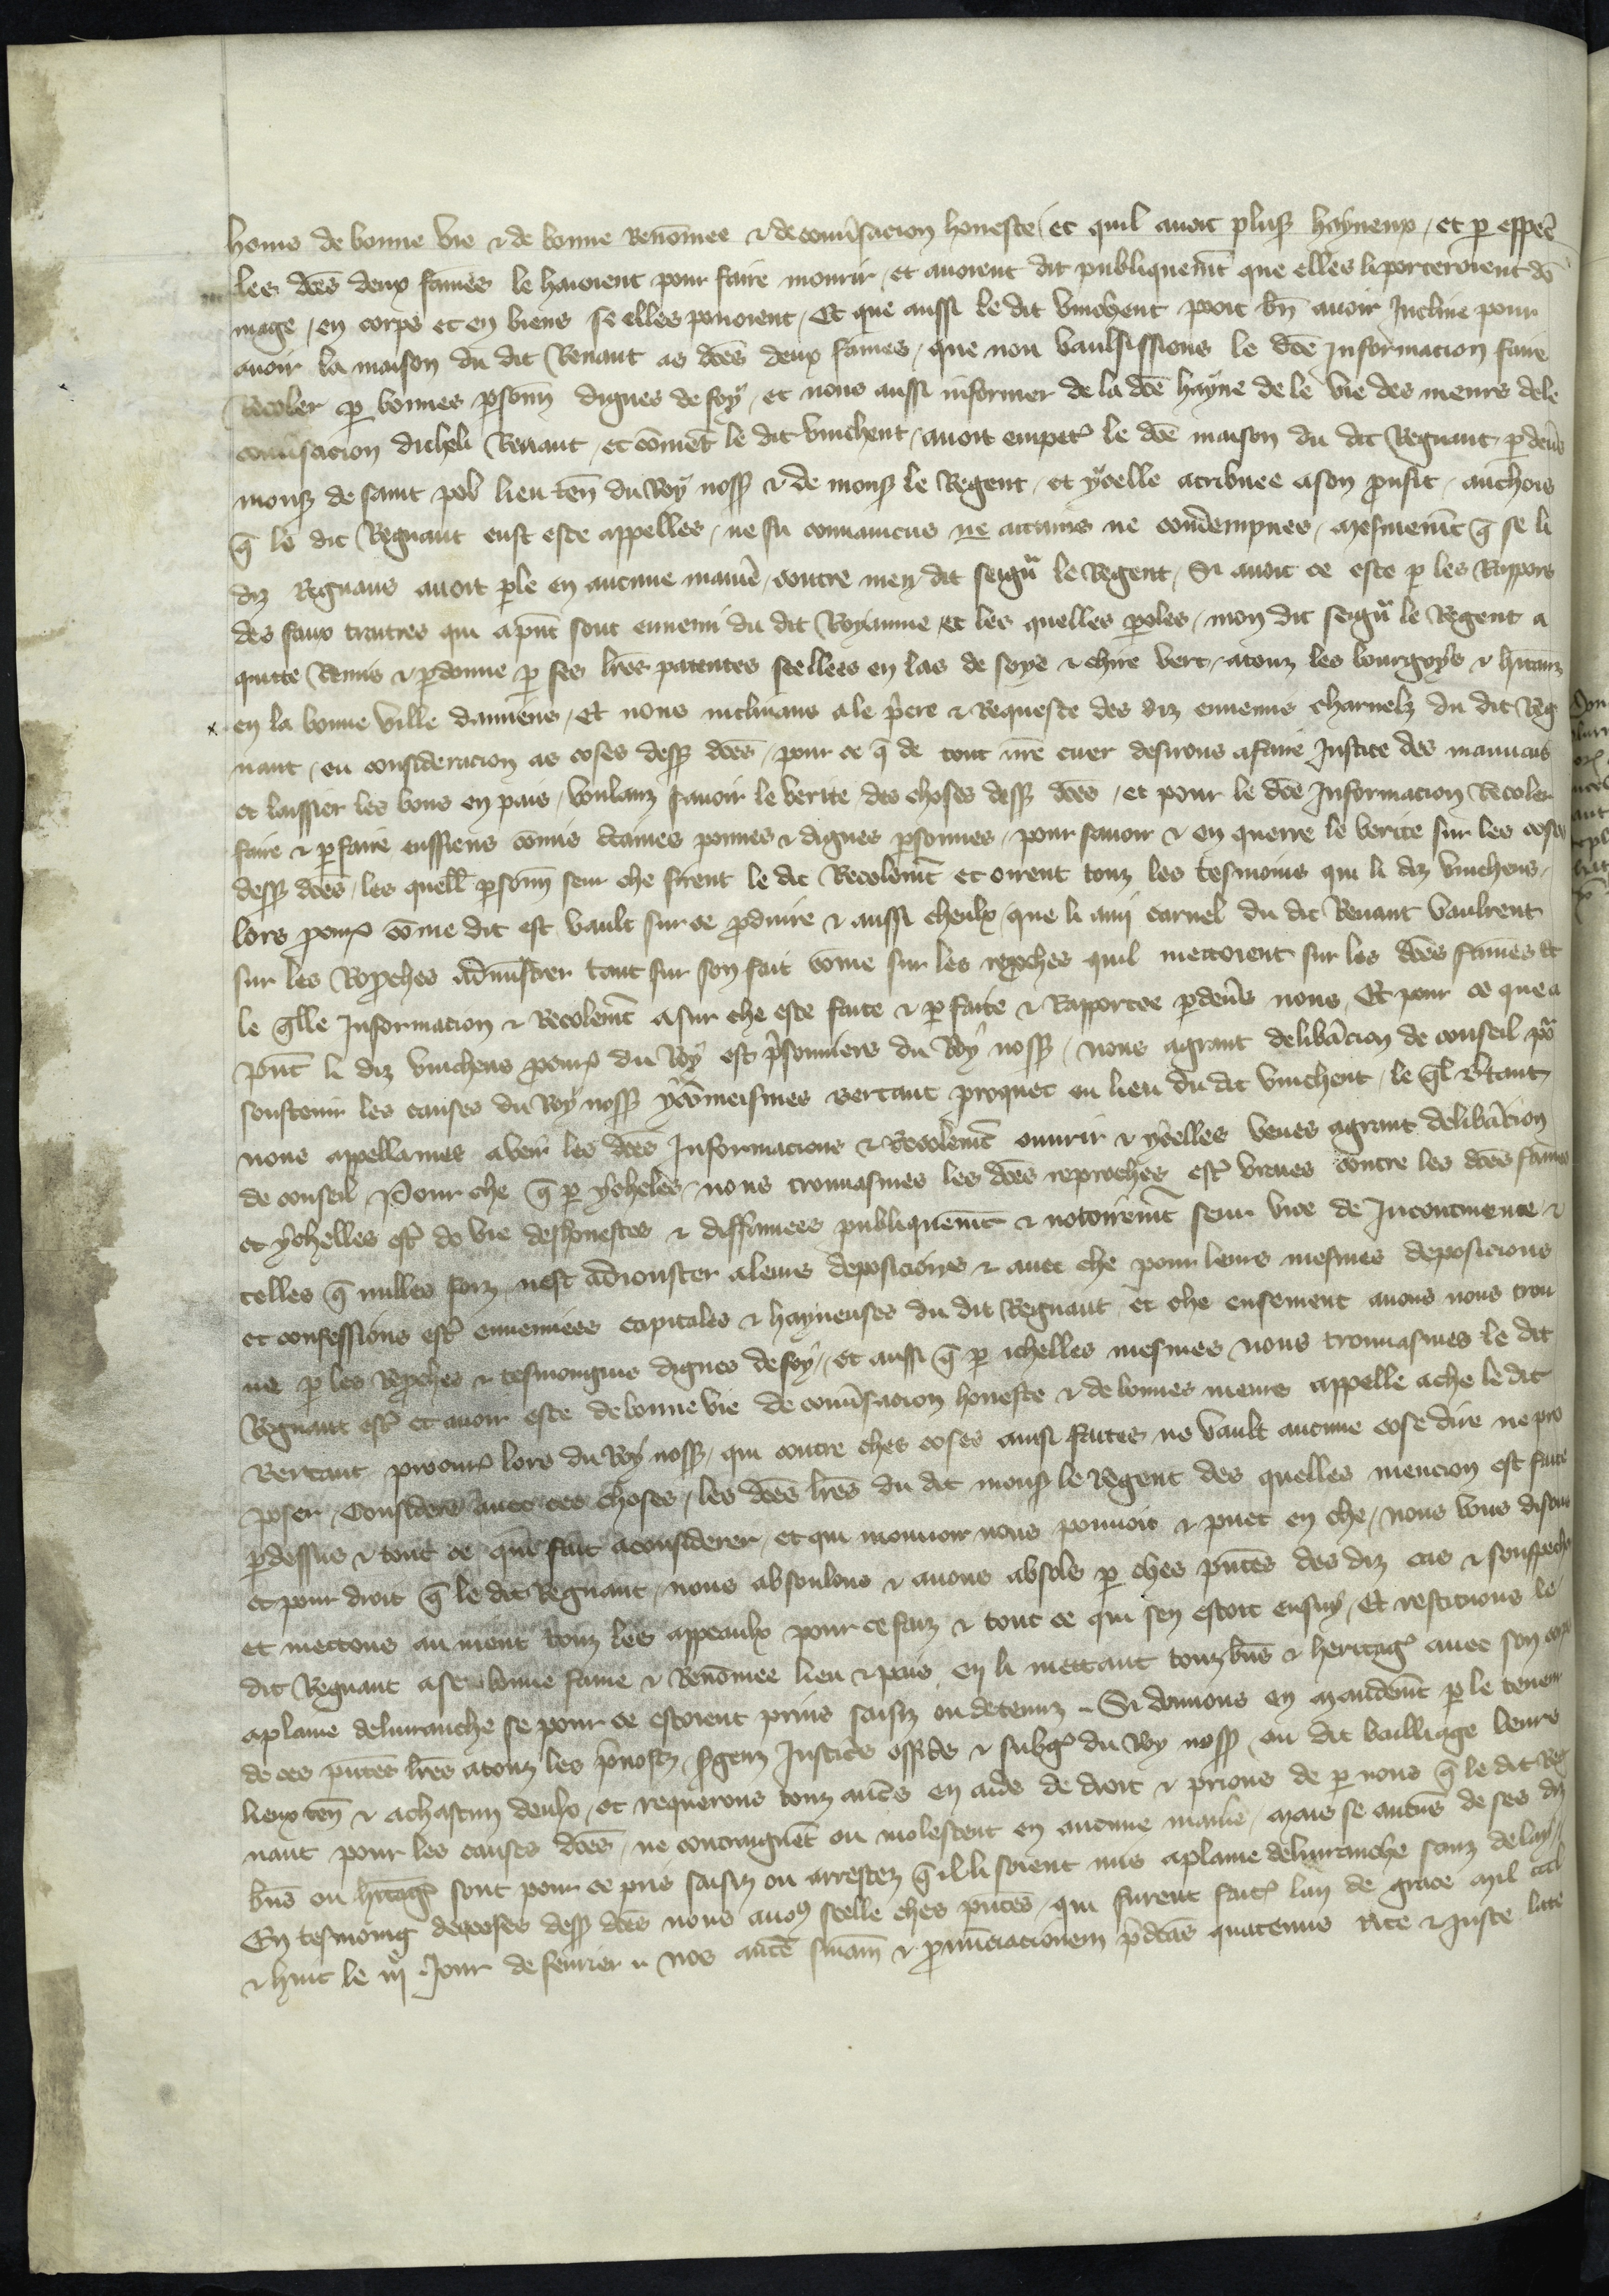 home de bonne vie & de bonne Renõmee & de conũsacion honeste / et quil auoit plus hayneux / et ꝑ esp̃e
les dc̃es deux fames le haioient pour faire mourir / et auoient dit publiquem̃t que elles li porteroient dõ
mage / en corps et en biens se elles pouoient / Et que aussi le dit vinchent pooit bñ auoir Incline pour
auoir la maison du dit Renaut as dc̃es deux fames / que nou vaulsissions le dc̃e Informacion faire
Recoler ꝑ bonnes ꝑsonn̄ dignes de foy / et nous aussi informer de la dc̃e hayne de le vie des meurs de le
conũsacion dicheli Renaut / et cõmẽt le dit vinchent / auoit empet̾ le dc̃e maison du dit Regnaut / ꝑ deũs
mons̾ de saint pol lieu teñ du Roy nosſ̾ & de mons̾ le Regent / et ycelle atribuee a son ꝓufit / anchois
q̃ le dit Regnaut eust este appelles / ne fu conuaincus ne attains ne condempnes / mesmem̃t q̃ se li
diz Regnaus auoit ꝑle en aucune manie͛ / contre men dit seigñ le Regent / Si auoit ce este ꝑ les Rappors
des faux traitres qui a p̃nt sont ennemi du dit Royaume / et les quelles ꝑoles / mon dit seigñ le Regent a
quitte Remis & ꝑdonne ꝑ ses lr̃es patentes seellees en las de soye & chire vert / a touz les bourgoys & h̃itanz
en la bonne ville damiens / Et nous inclinans a le p̃iere & Requeste des diz ennemis charnelz du dit Reg
naut / en consideracion as coses desſ̾ dc̃es / pour ce q̃ de tout nr̃e cuer desirons a faire Justice des mauuais
et laissier les bons en pais / voulanz sauoir le verite des choses desſ̾ dc̃es / et pour le dc̃e Informacion Recoler
faire & ꝑfaire eussiens cõmis ĉtaines ꝑonnes & dignes ꝑsonnes / pour sauoir & en querre le verite sur les coses
desſ̾ dc̃es / les quell̃ ꝑsonn̄ seur che firent le dit Recolem̃t et oirent touz les tesmoins qui li diz vinchens
lors ꝓcur̾ cõme dit est vault sur ce ꝓduire & aussi cheulx / que li ami carnel du dit Renaut vaulrent
sur les Rep̾ches admistrer tant sur son fait cõme sur les rep̾ches quil mettoient sur les dc̃es fames Et
le q̃lle Informacion & Recolem̃t a sur che este faite & ꝑfaite & Rapportee ꝑdeũs nous / Et pour ce que a
p̃nt li diz vinchens ꝓcur̾ du Roy est p̃sonniers du Roy nosſ̾ / nous a grant delibãcion de conseil po͛
soustenir les causes du Roy nosſ̾ ycõmeismes bertaut proquet en lieu du dit vinchent / le q̃l Btaut
nous appellames a veir les dc̃es Informacions & Recolem̃t ouurir & ycelles veues a grant delibãcion
de conseil / Pour che q̃ ꝑ ycheles / nous trouuasmes les dc̃es reproches est̾ vraies contre les dc̃es fames
et ychelles est̾ de vie deshonestes & diffamees publiquem̃t & notoirem̃t seur vice de Incontinence &
telles q̃ nulles foiz nest adiouster a leurs deposicions & auec che pour leurs mesmes deposicions
et confessions est̾ ennemies capitales & hayneuses du dit Regnaut et che ensement auons nous trou
ue ꝑ les Rep̾ches & tesmoingins dignes de foy / et aussi q̃ ꝑ ichelles mesmes nous trouuasmes le dit
Regnaut est̾ et auoir este de bonne vie de conũsacion honeste & de bonnes meurs appelle a che le dit
Bertaut procur̾ lors du Roy nosſ̾ / qui contre ches coses ainsi faites ne vault aucune cose dire ne pro
poser / Considere auec ces choses / les dc̃es lr̃es du dit mons̾ le Regent des quelles mencion est faite
ꝑdessus & tout ce qui fait a considerer / et qui mouuoir nous pouuoit & puet en che / nous vous disons
et pour droit q̃ le dit Regnaut / nous absoulons & auons absols ꝑ ches p̃ntes des diz cas & souspechons
et mettons au nient touz les appeaulx pour ce faiz & tout ce qui sen estoit ensuy / Et restituons le
dit Regnaut a se bonne fame & Renõmee lieu & pais en li mettant touz bñs & heritag̾ auec son corps
a plaine deliuranche se pour ce estoient prins saisiz ou detenuz / Si donnons en mandem̃t ꝑ le teneur
de ces p̃ntes lr̃es a touz les p̃uostz / s̾genz Justices offic̃s & subg̾ du Roy nosſ̾ / ou dit bailliage leurs
lieux teñ & a chascun deulx / et requerons touz aut̾s en aide de droit & prions de ꝑ nous q̃ le dit Reg
naut pour les causes dc̃es / ne contraignẽt ou molestent en aucune manie͛ / mais se aucũs de ses diz
bñs ou h̃itag̾ sont pour ce pris saisiz ou arrestez q̃ il li soient mis a plaine deliuranche sanz delay
En tesmoing des coses desſ̾ dc̃es nous auõs seelle ches p̃ntes / qui furent fait̾ lan de grace mil ccc l
& huit le iij͛ Jour de feurier // nos aut̃e sniam̃ & ꝓnũciacionem p̃dc̃as quatenus rite & Juste late